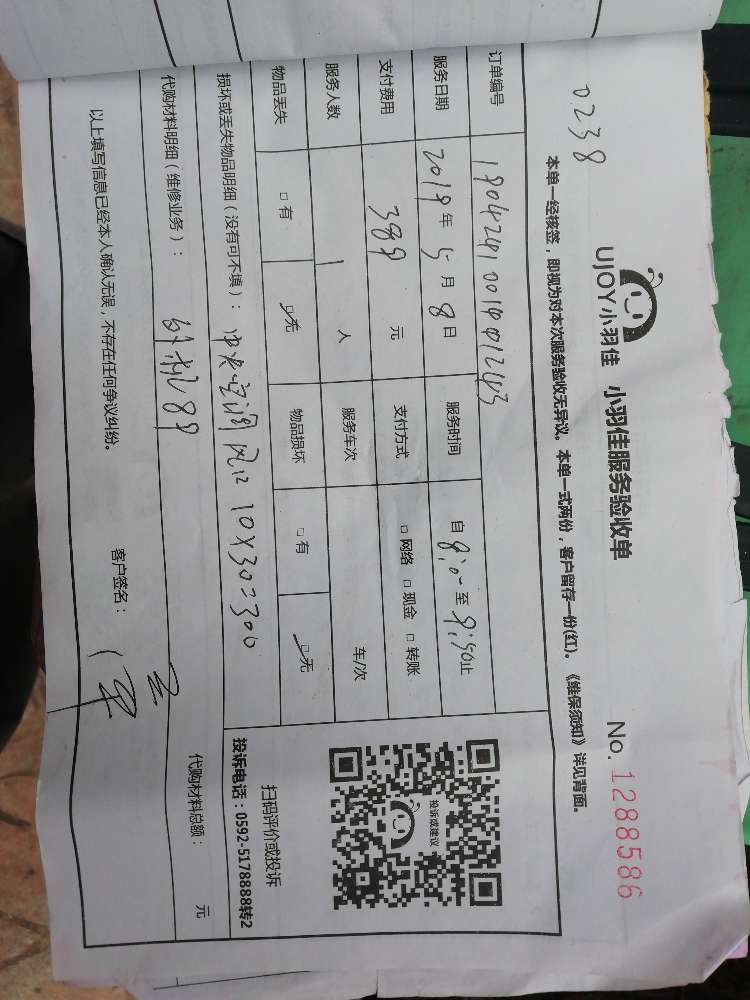 0238
UJOY小羽佳 小羽佳服务验收单
No. 1288586
本单一经核签，即视为对本次服务验收无异议。本单一式两份，客户留存一份(红)。《维保须知》详见背面。
订单编号
服务日期 2019年5月8日 服务时间 自 8:0 至 9:50止
支付费用 389 元 支付方式 □网络 □现金 □转账
服务人数 1 人 服务车次 车/次
物品丢失 □有 ☑无 物品损坏 □有 ☑无
损坏或丢失物品明细（没有可不填）：中央空调风口10×30=300
代购材料明细（维修业务）：外机89
代购材料总额： 元
以上填写信息已经本人确认无误，不存在任何争议纠纷。
客户签名：
投诉或建议
扫码评价或投诉
投诉电话：0592-5178888转2